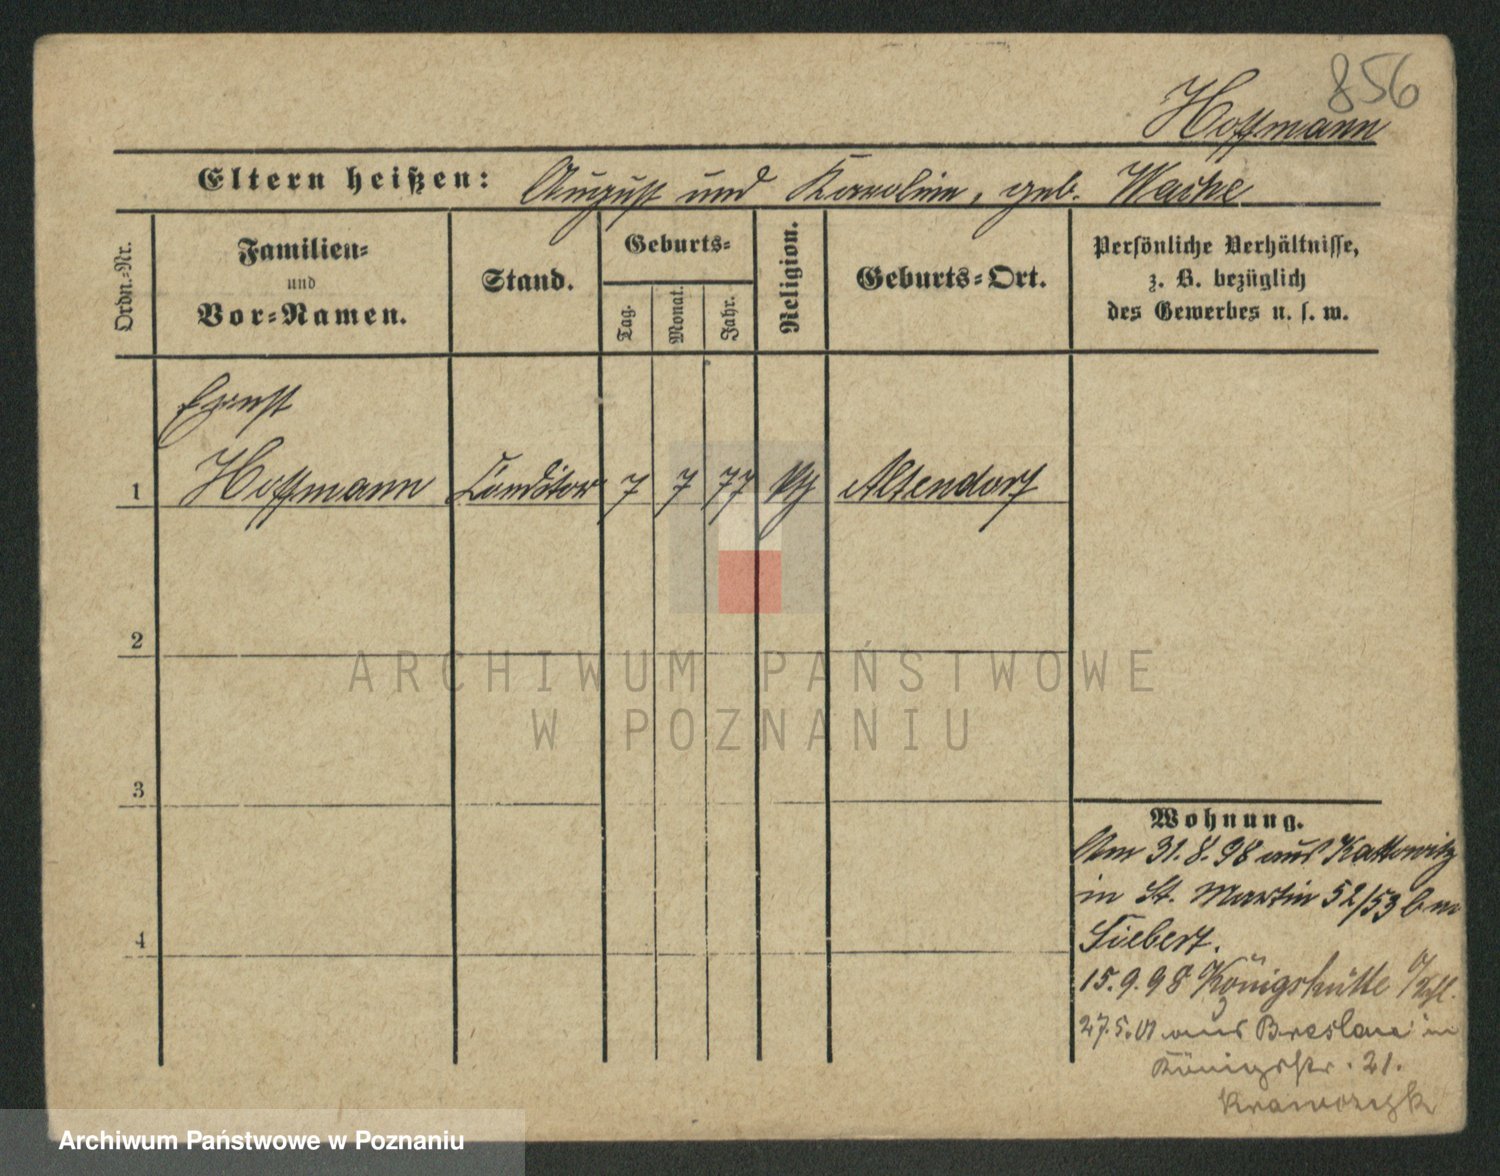 856
Hoffmann
Eltern heißen: August und Karoline, geb.
Ordn.-Nr.
Familien-
und
Vor-Namen.
Stand.
Geburts-
Tag.
Monat.
Jahr.
Religion.
Geburts-Ort.
Persönliche Verhältnisse,
z. B. bezüglich
des Gewerbes u. s. w.
Ernst
1 Hoffmann Conditor 7 7 77 Altendorf
2
3
4
Wohnung.
Am 31.8.98 aus Kattowitz
in St. Martin 52/53 bei
Siebert.
15.9.98 Königshütte
27.5.01 aus Breslau in
Königsstr. 21.
Krawczyk
ARCHIWUM PAŃSTWOWE
W POZNANIU
Archiwum Państwowe w Poznaniu